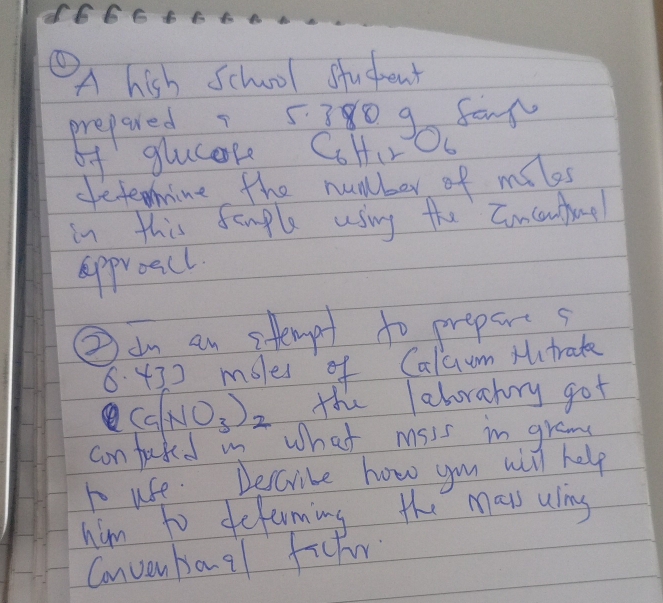 ① A high school student
prepared a 5.380 g sample
of glucose C6H12O6
determine the number of moles
in this sample using the
approach.
② In an attempt to prepare a
6.433 moles of Calcium Nitrate
Ca(NO3)2 the laboratory got
confused in what mass in grams
to use. Describe how you will help
him to determing the mass using
Conventional factor.